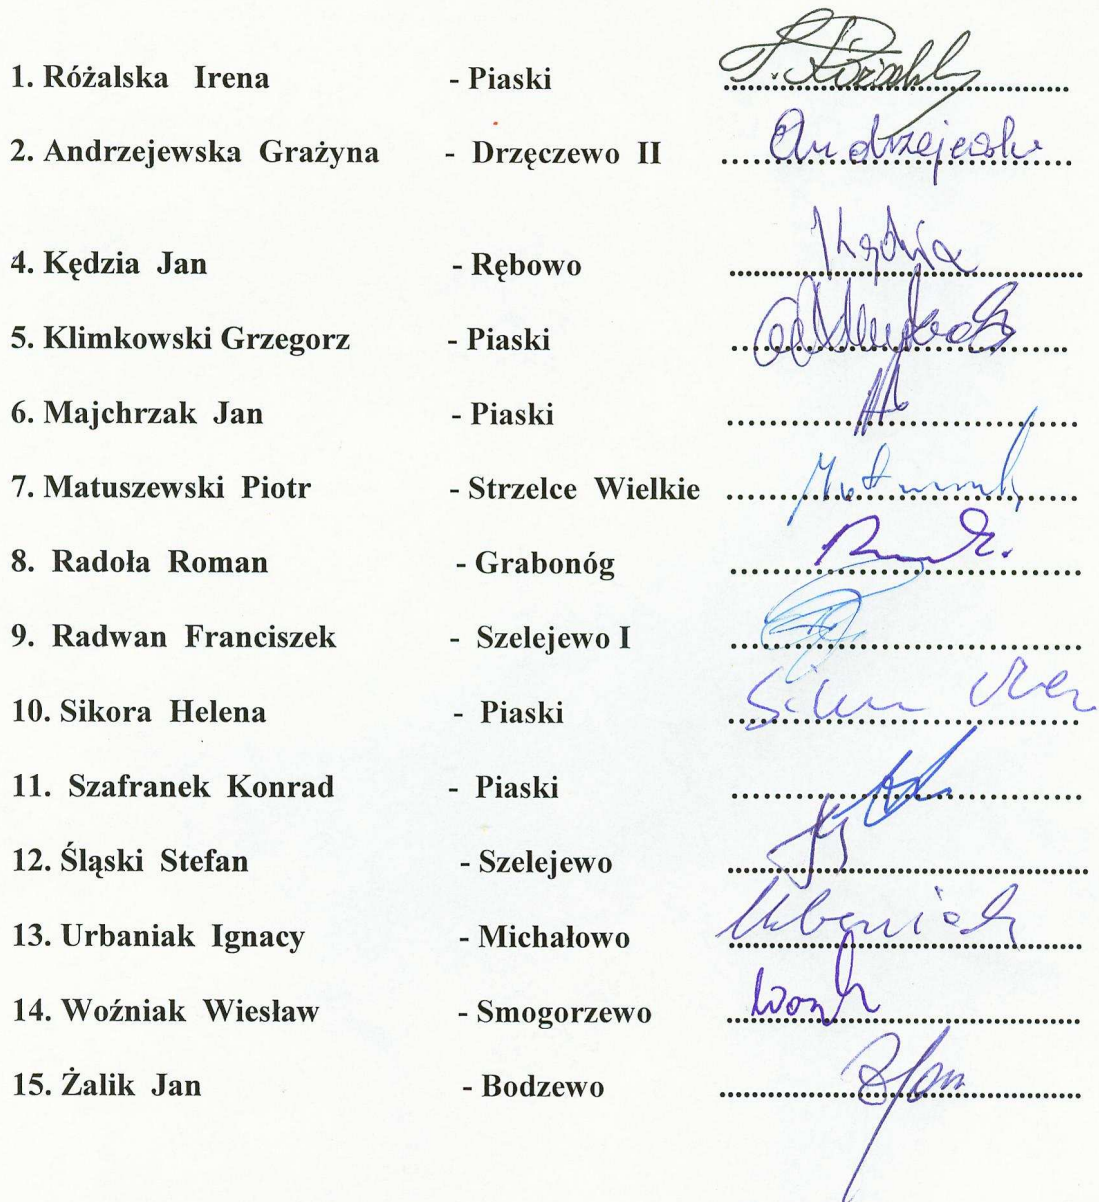 1. Różalska Irena - Piaski
2. Andrzejewska Grażyna - Drzęczewo II Andrzejewska
4. Kędzia Jan - Rębowo Kędzia
5. Klimkowski Grzegorz - Piaski
6. Majchrzak Jan - Piaski
7. Matuszewski Piotr - Strzelce Wielkie
8. Radoła Roman - Grabonóg
9. Radwan Franciszek - Szelejewo I
10. Sikora Helena - Piaski
11. Szafranek Konrad - Piaski
12. Śląski Stefan - Szelejewo
13. Urbaniak Ignacy - Michałowo Urbaniak
14. Woźniak Wiesław - Smogorzewo
15. Żalik Jan - Bodzewo